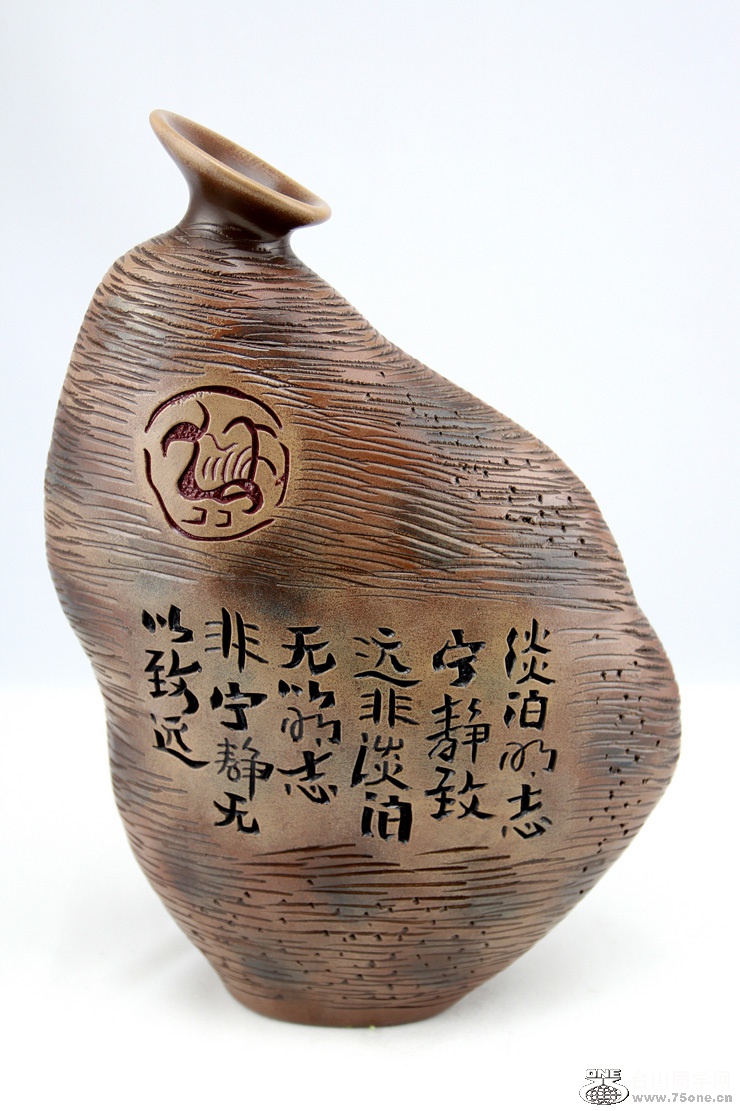 淡泊明志
宁静致
远非淡泊
无以明志
非宁静无
以致远
ONE
www.75one.cn